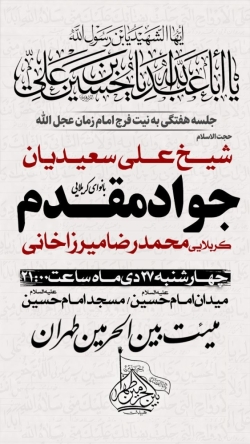 ایها الشهید یابن رسول الله
یا اباعبدالله یا حسین بن علی
جلسه هفتگی به نیت فرج امام زمان عجل الله
حجت الاسلام
شیخ علی سعیدیان
بانوای کربلایی
جواد مقدم
کربلایی محمدرضا میرزاخانی
چهارشنبه ۲۷ دی ماه ساعت ۲۱:۰۰
میدان امام حسین علیه‌السلام / مسجد امام حسین علیه‌السلام
هیئت بین الحرمین طهران
بین الحرمین طهران